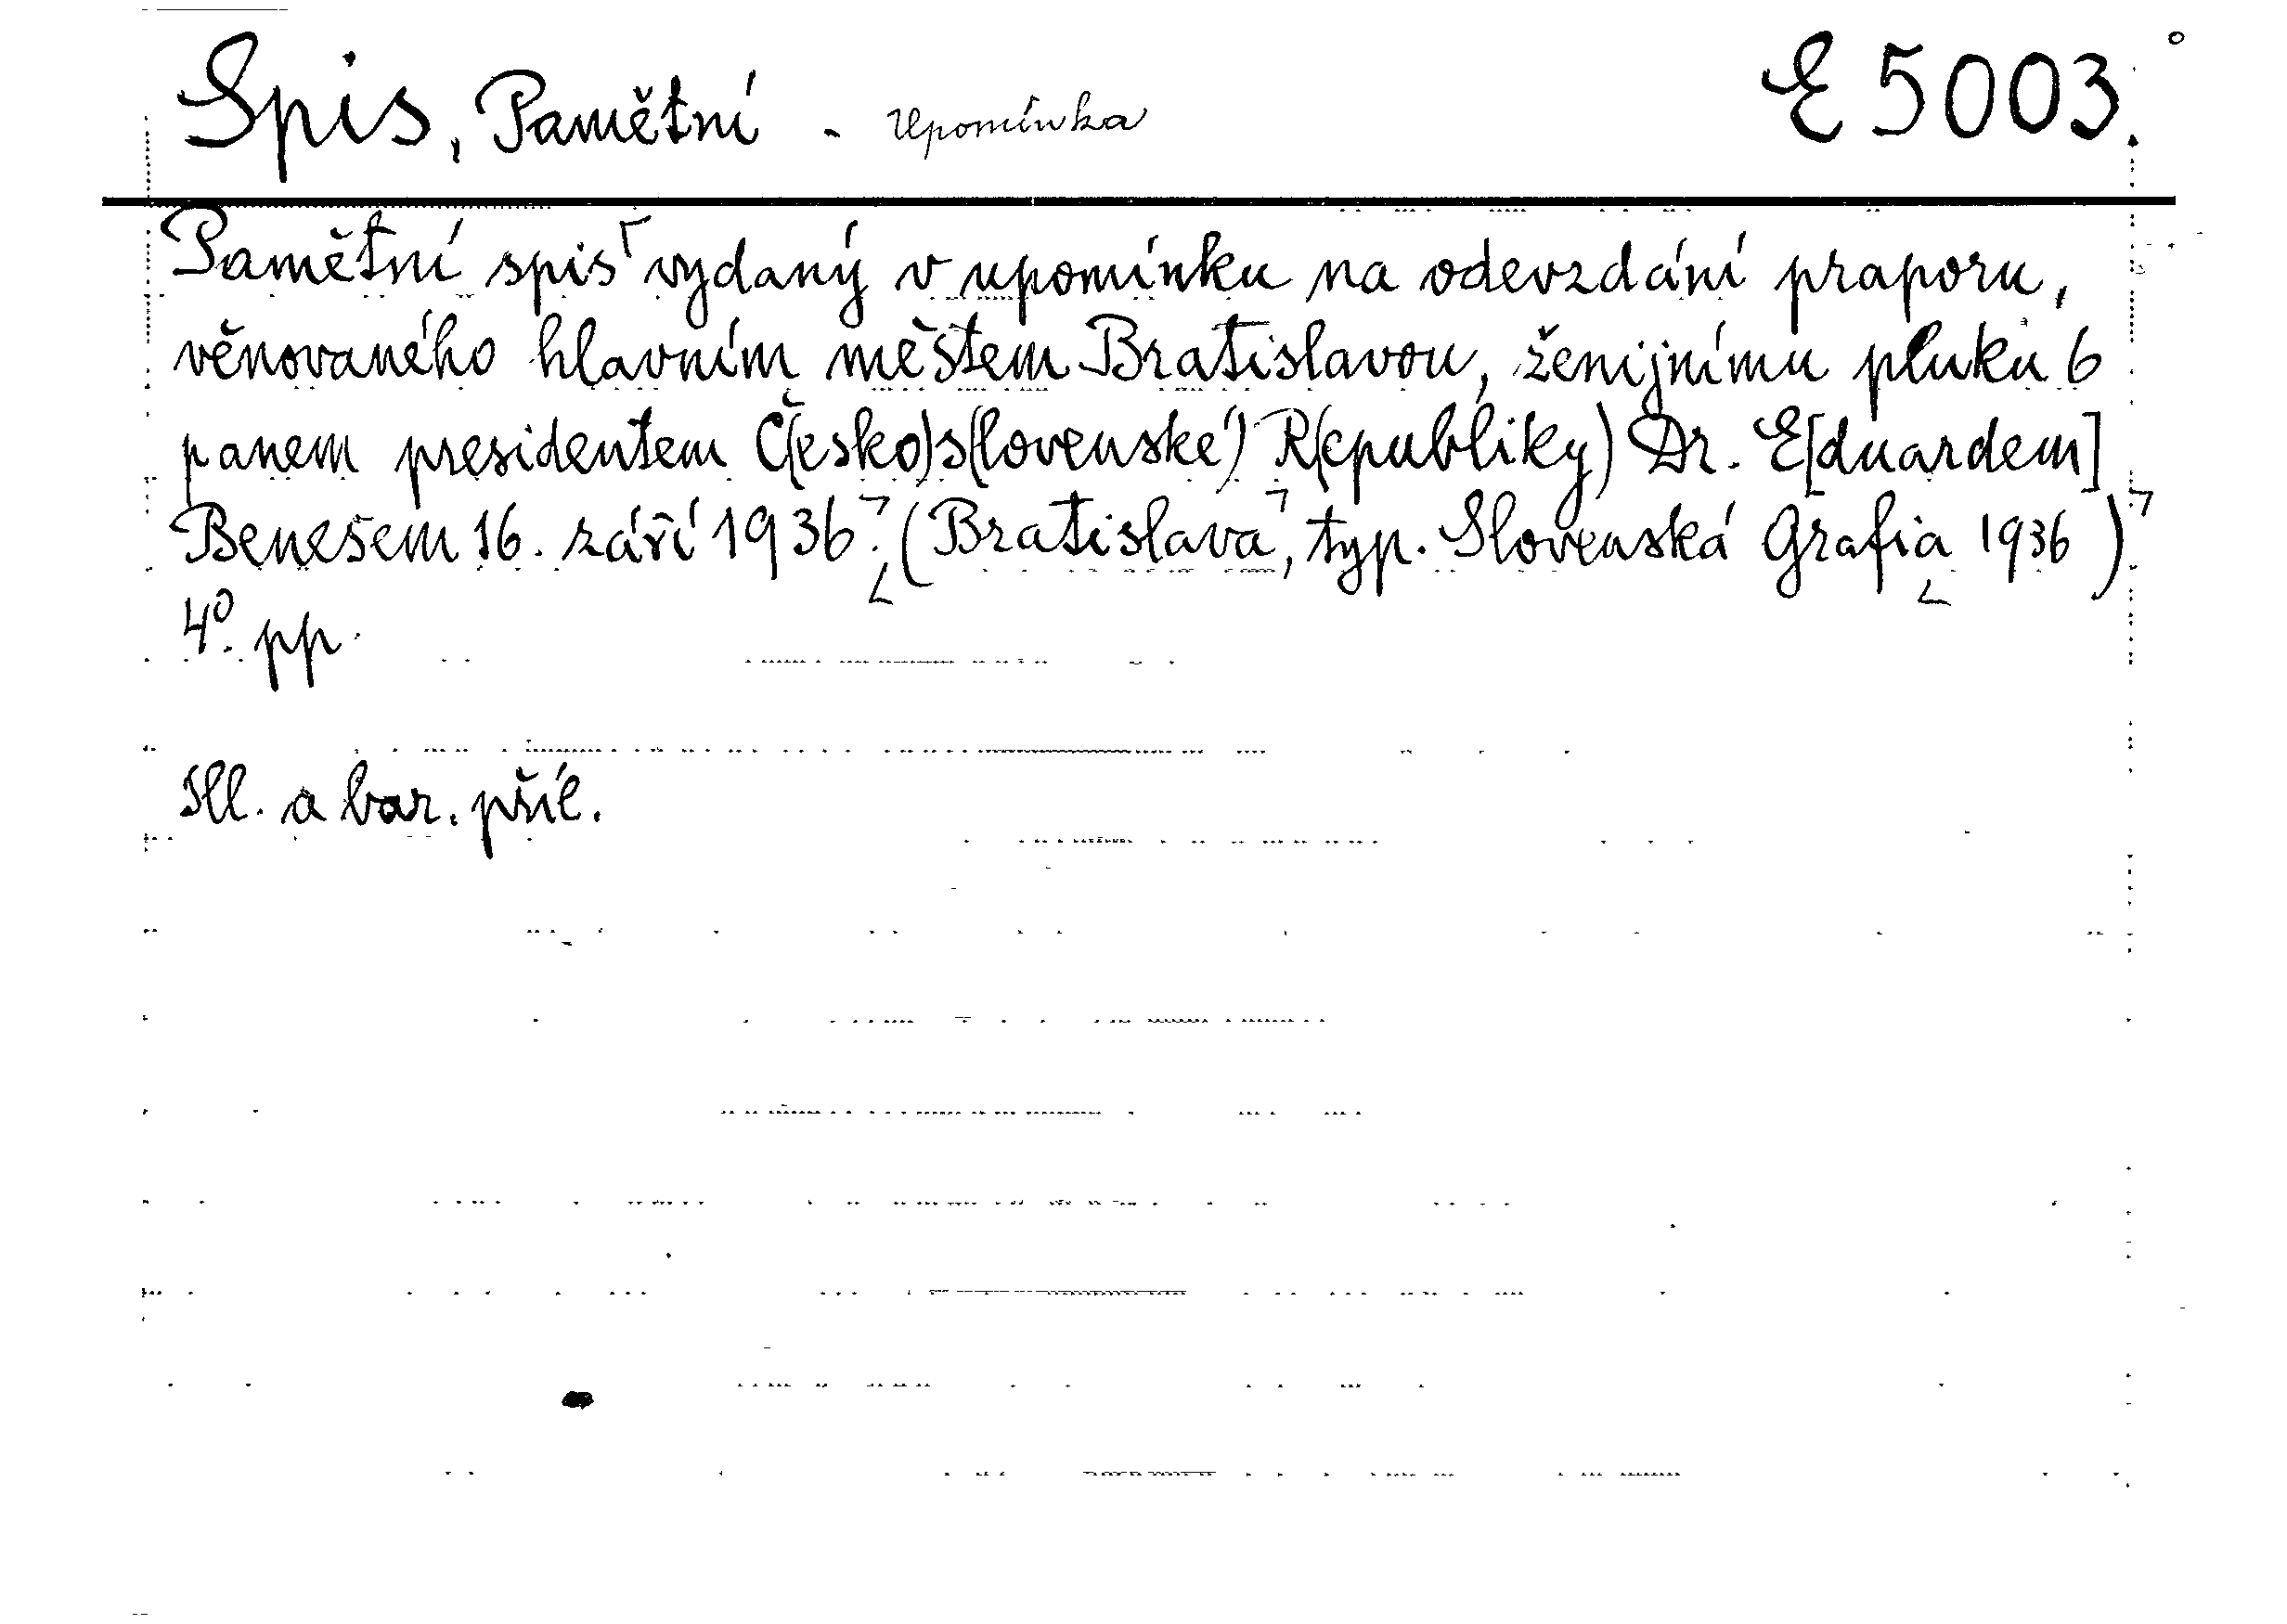 Spis, Pamětní - Upomínka E 5003.
Pamětní spis vydaný v upomínku na odevzdání praporu,
věnovaného hlavním městem Bratislavou, ženijnímu pluku 6
panem presidentem Č(esko)s(lovenské) R(epubliky) Dr. E[duardem]
Benešem 16. září 1936. (Bratislava, typ. Slovenská Grafia 1936)
4°. pp.
Ill. a bar. příl.